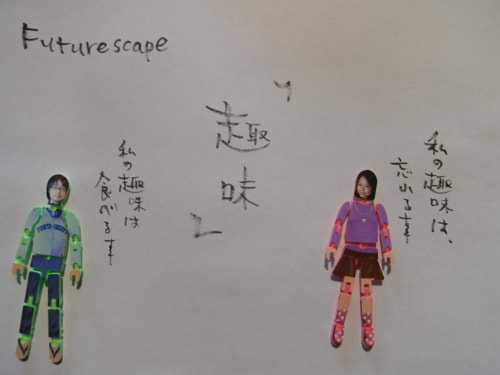 Futurescape
「趣味」
私の趣味は、
忘れる事
私の趣味は
食べる事